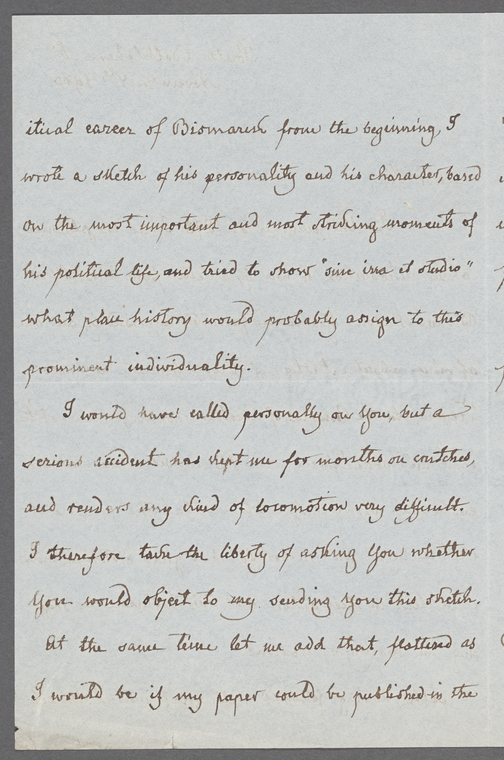 itical career of Bismarck from the beginning, I
wrote a sketch of his personality and his character, based
on the most important and most striking moments of
his political life, and tried to show "sine ira et studio"
what place history would probably assign to this
prominent individuality.
I would have called personally on You, but a
serious accident has kept me for months on crutches,
and renders any kind of locomotion very difficult.
I therefore take the liberty of asking You whether
You would object to my sending You this sketch.
At the same time let me add that, flattered as
I would be if my paper could be published in the